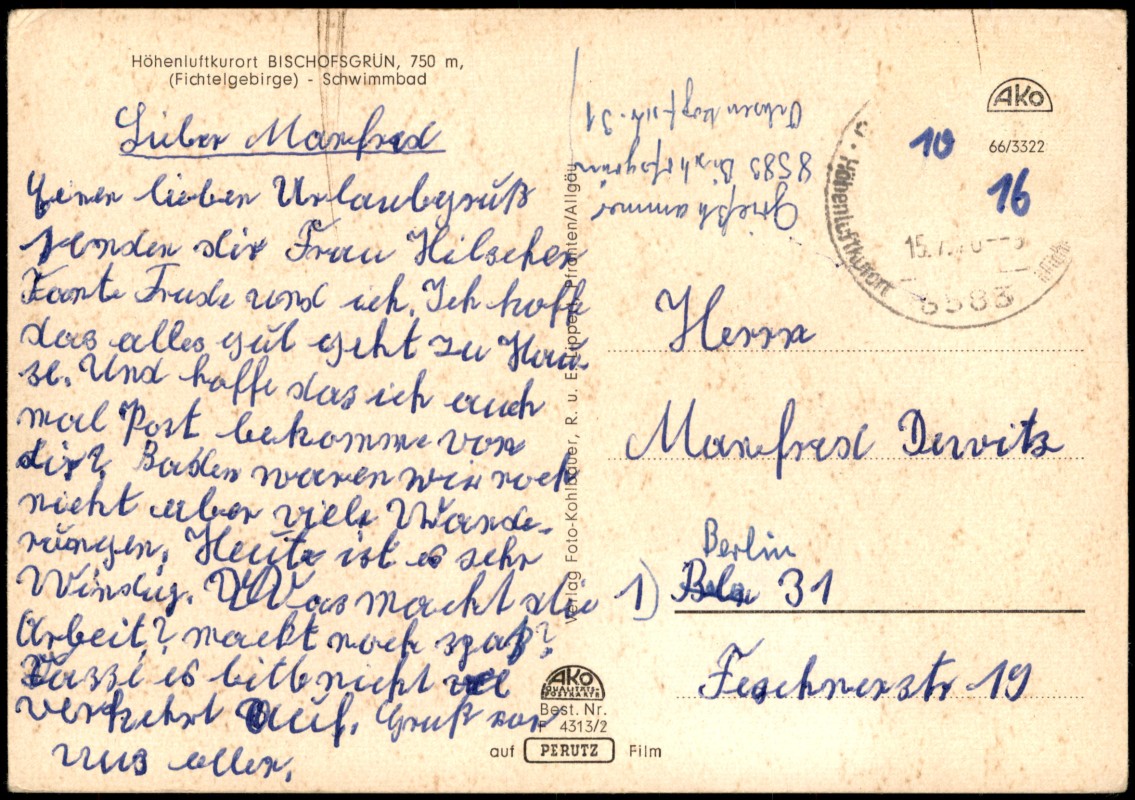 Höhenluftkurort BISCHOFSGRÜN, 750 m,
(Fichtelgebirge) - Schwimmbad
Lieber Manfred
Einen lieben Urlaubsgruß
senden dir Frau Hilscher
Tante Frude und ich. Ich hoffe
das alles gut geht zu Hau-
se. Und hoffe das ich auch
mal Post bekomme von
dir? Baden waren wir noch
nicht aber viele Wande-
rungen. Heute ist es sehr
Windig. Was macht die
Arbeit? macht noch spaß?
Fasse es bitte nicht
verkehrt Auf. Gruß von
uns allen.
Verlag Foto-Kohlbauer, R. u. E. Lippert, Pfronten/Allgäu
Grießhammer
8583 Bischofsgrün
Ochsenkopfstr. 31
AKO
66/3322
10
16
Höhenluftkurort
15.7.70
8583
Herrn
Manfred Dewitz
Berlin
1) Bln 31
Fechnerstr 19
AKO
QUALITÄTS-
POSTKARTE
Best. Nr.
F 4313/2
auf PERUTZ Film